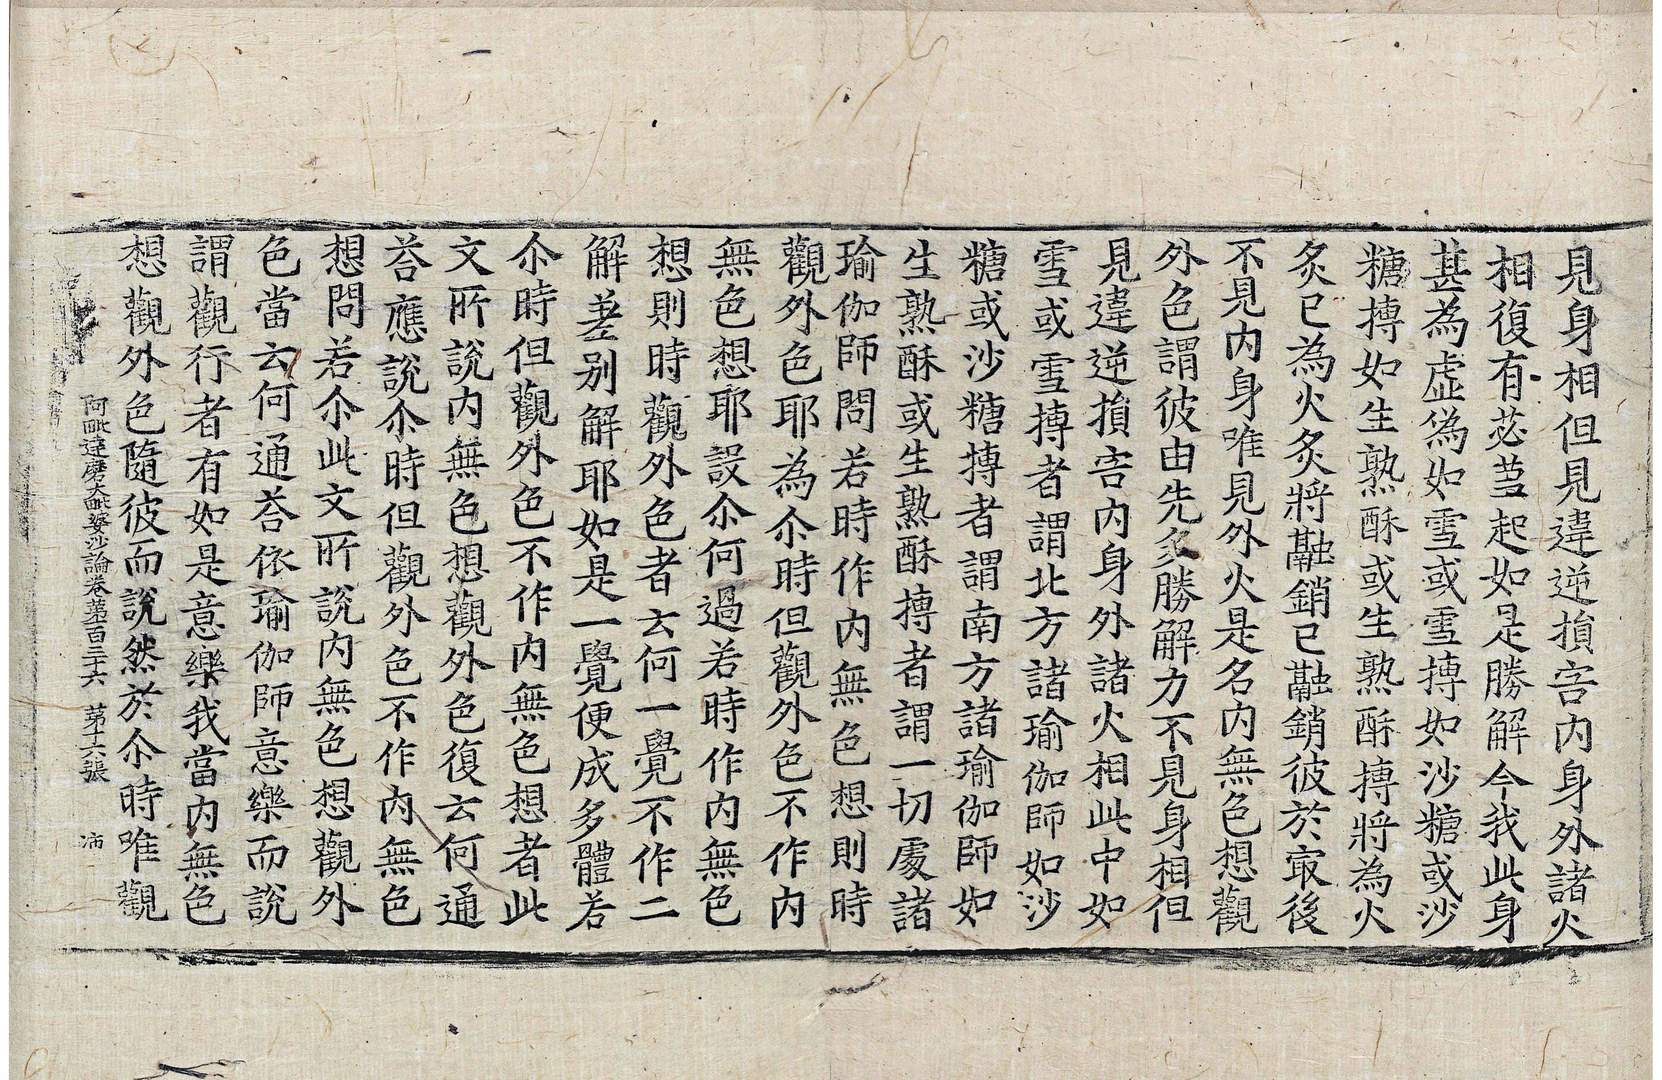 見身相但見違逆損害內身外諸火
相復有苾蒭起如是勝解今我此身
甚為虛偽如雪或雪摶如沙糖或沙
糖摶如生熟酥或生熟酥摶將為火
炙已為火炙將融銷已融銷彼於㝡後
不見內身唯見外火是名內無色想觀
外色謂彼由先多勝解力不見身相但
見違逆損害內身外諸火相此中如
雪或雪摶者謂北方諸瑜伽師如沙
糖或沙糖摶者謂南方諸瑜伽師如
生熟酥或生熟酥摶者謂一切處諸
瑜伽師問若時作內無色想則時
觀外色耶為尒時但觀外色不作內
無色想耶設尒何過若時作內無色
想則時觀外色者云何一覺不作二
解差別解耶如是一覺便成多體若
尒時但觀外色不作內無色想者此
文所說內無色想觀外色復云何通
荅應說尒時但觀外色不作內無色
想問若尒此文所說內無色想觀外
色當云何通荅依瑜伽師意樂而說
謂觀行者有如是意樂我當內無色
想觀外色隨彼而說然於尒時唯觀
阿毗達磨大毗婆沙論卷苐百三十六　苐十六張　沛